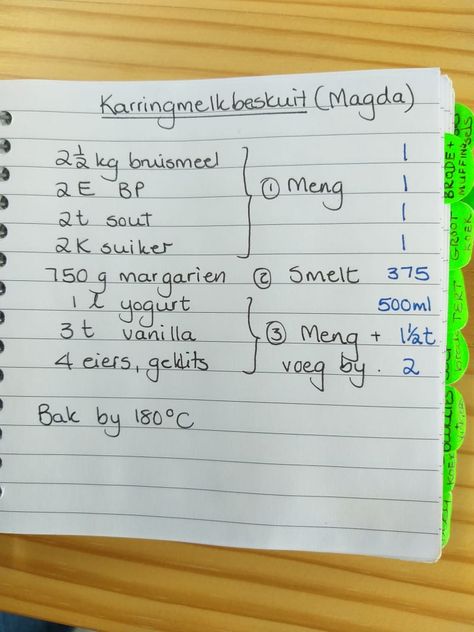 Karringmelkbeskuit (Magda)
2½ kg bruismeel 1
2 E BP ① Meng 1
2t sout 1
2K suiker 1
750 g margarien ② Smelt 375
1 l yogurt 500ml
3 t vanilla ③ Meng + 1½t
4 eiers, geklits voeg by. 2
Bak by 180°C
BRODE +
MUFFINS
GROOT
KOEK
TERT